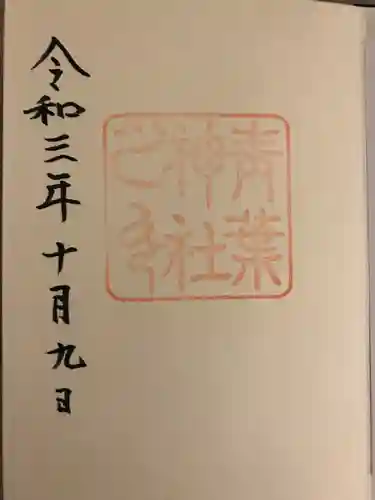 令和三年十月九日
青葉
神社